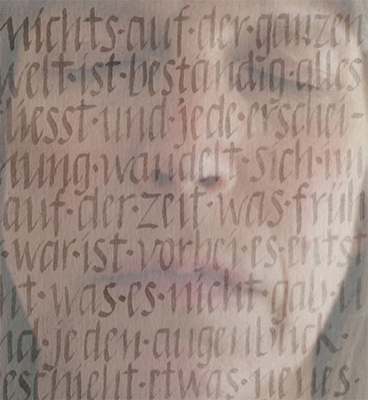 nichts·auf·der·ganzen
welt·ist·beständig·alles
fliesst·und·jede·erschei-
nung·wandelt·sich·im
auf·der·zeit·was·früh
·war·ist·vorbei·es·entst
ht·was·es·nicht·gab·u
nd·jeden·augenblick·
eschieht·etwas·neues·